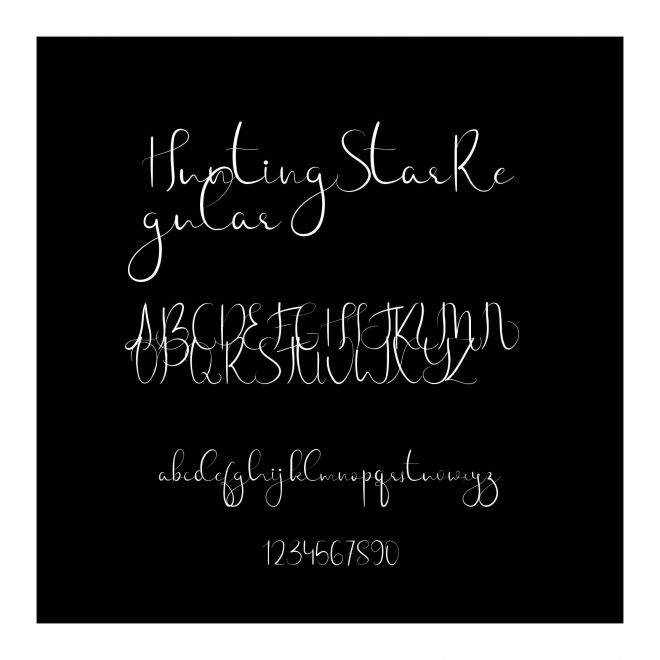 HuntingStarRe
gular
ABCDEFGHIJKLMN
OPQRSTUVWXYZ
abcdefghijklmnopqrstuvwxyz
1234567890